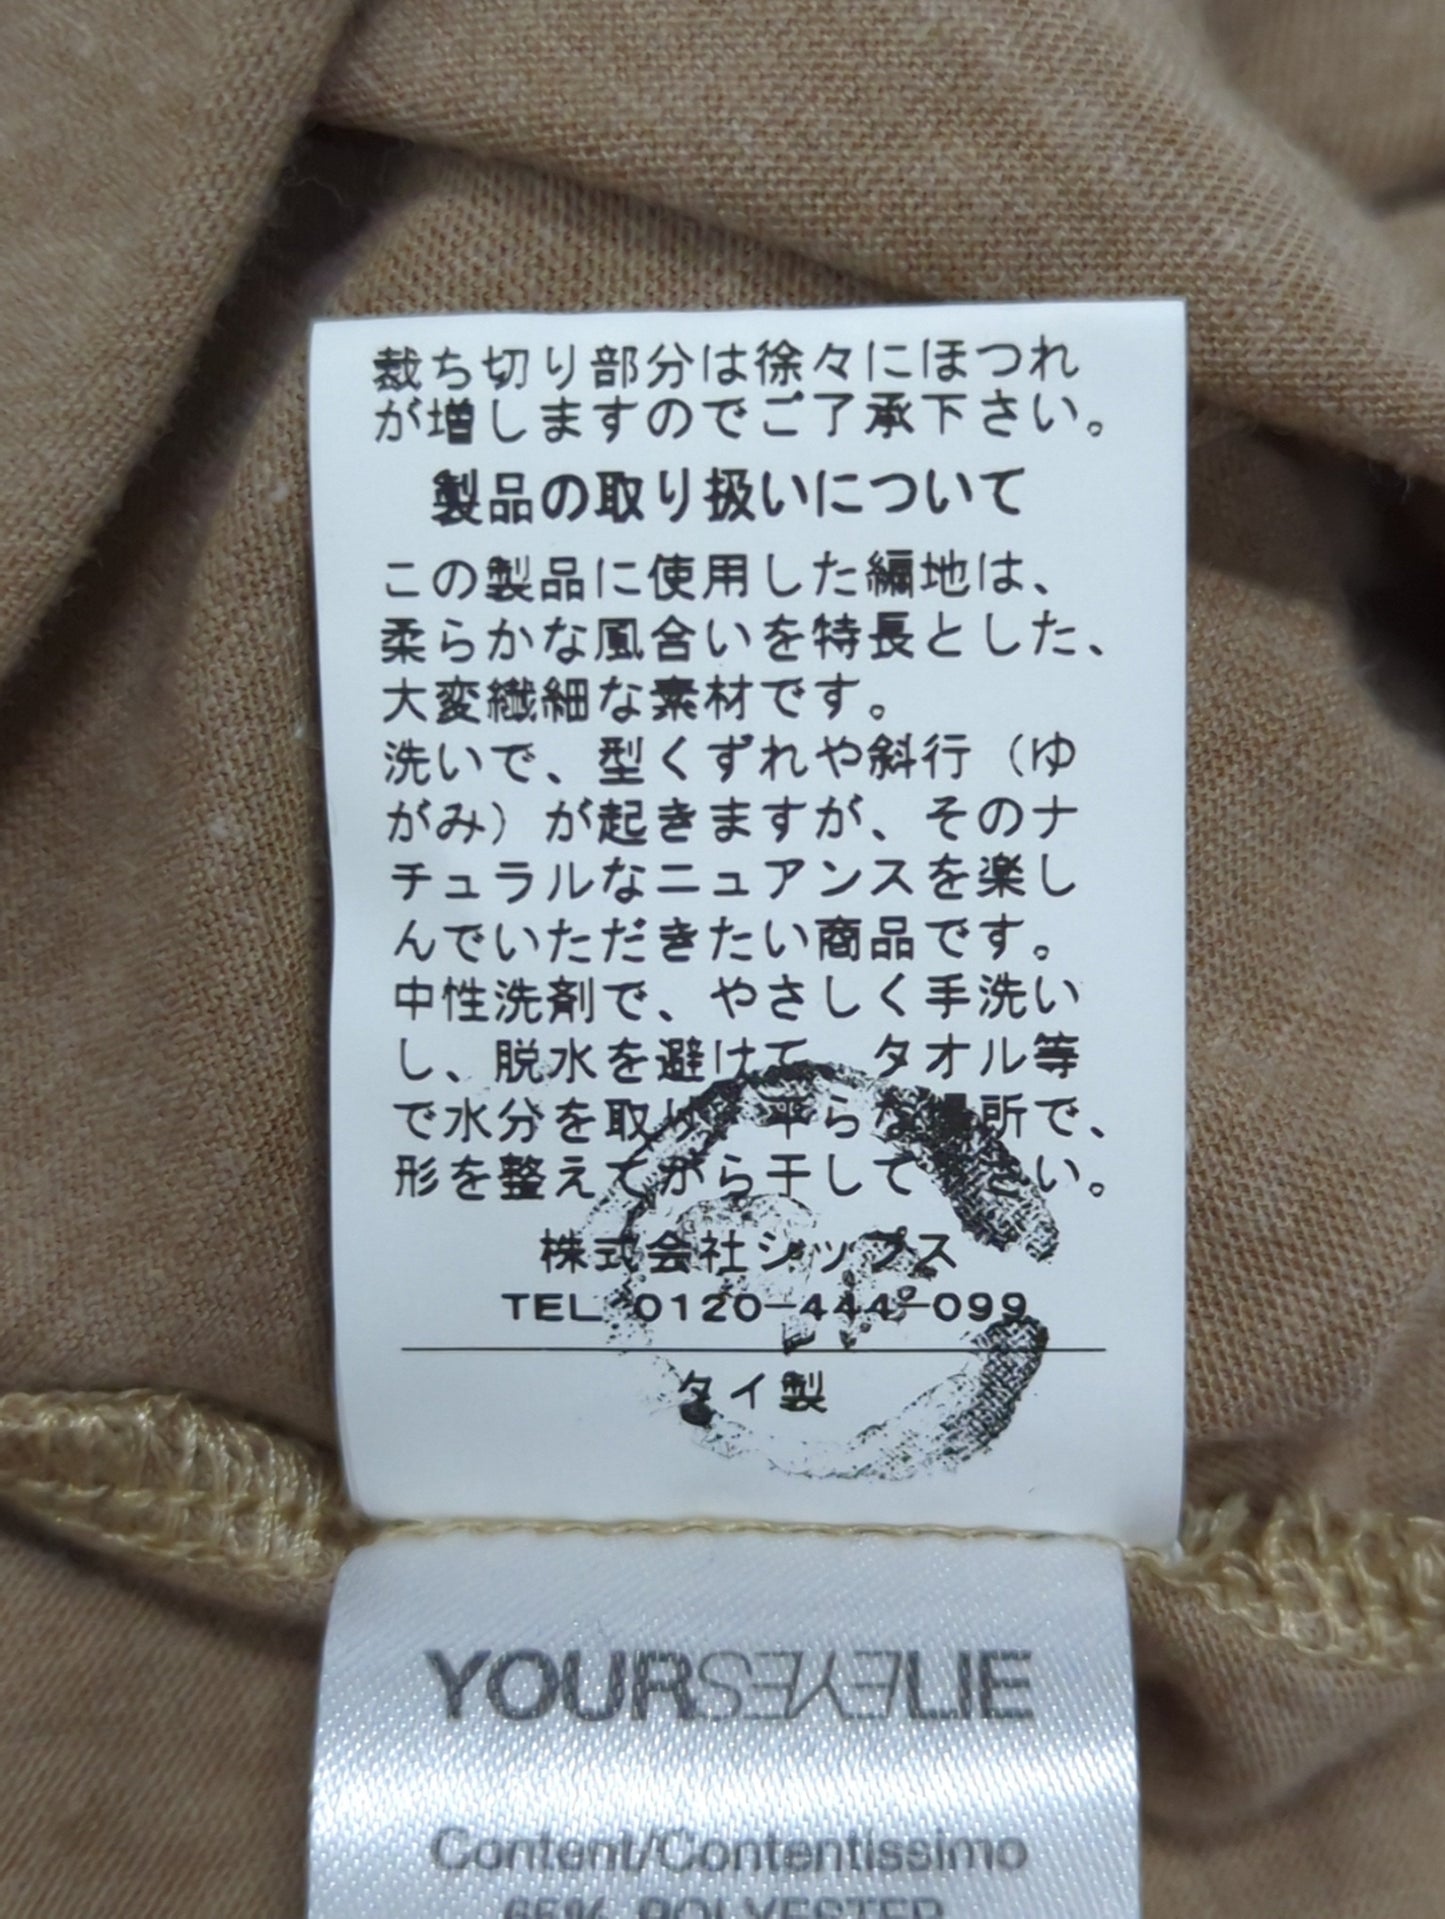 裁ち切り部分は徐々にほつれ
が増しますのでご了承下さい。
製品の取り扱いについて
この製品に使用した編地は、
柔らかな風合いを特長とした、
大変繊細な素材です。
洗いで、型くずれや斜行（ゆ
がみ）が起きますが、そのナ
チュラルなニュアンスを楽し
んでいただきたい商品です。
中性洗剤で、やさしく手洗い
し、脱水を避けて、タオル等
で水分を取り、平らな場所で、
形を整えてから干して下さい。
株式会社シップス
TEL 0120-444-099
タイ製
YOURSEYESLIE
Content/Contentissimo
65% POLYESTER